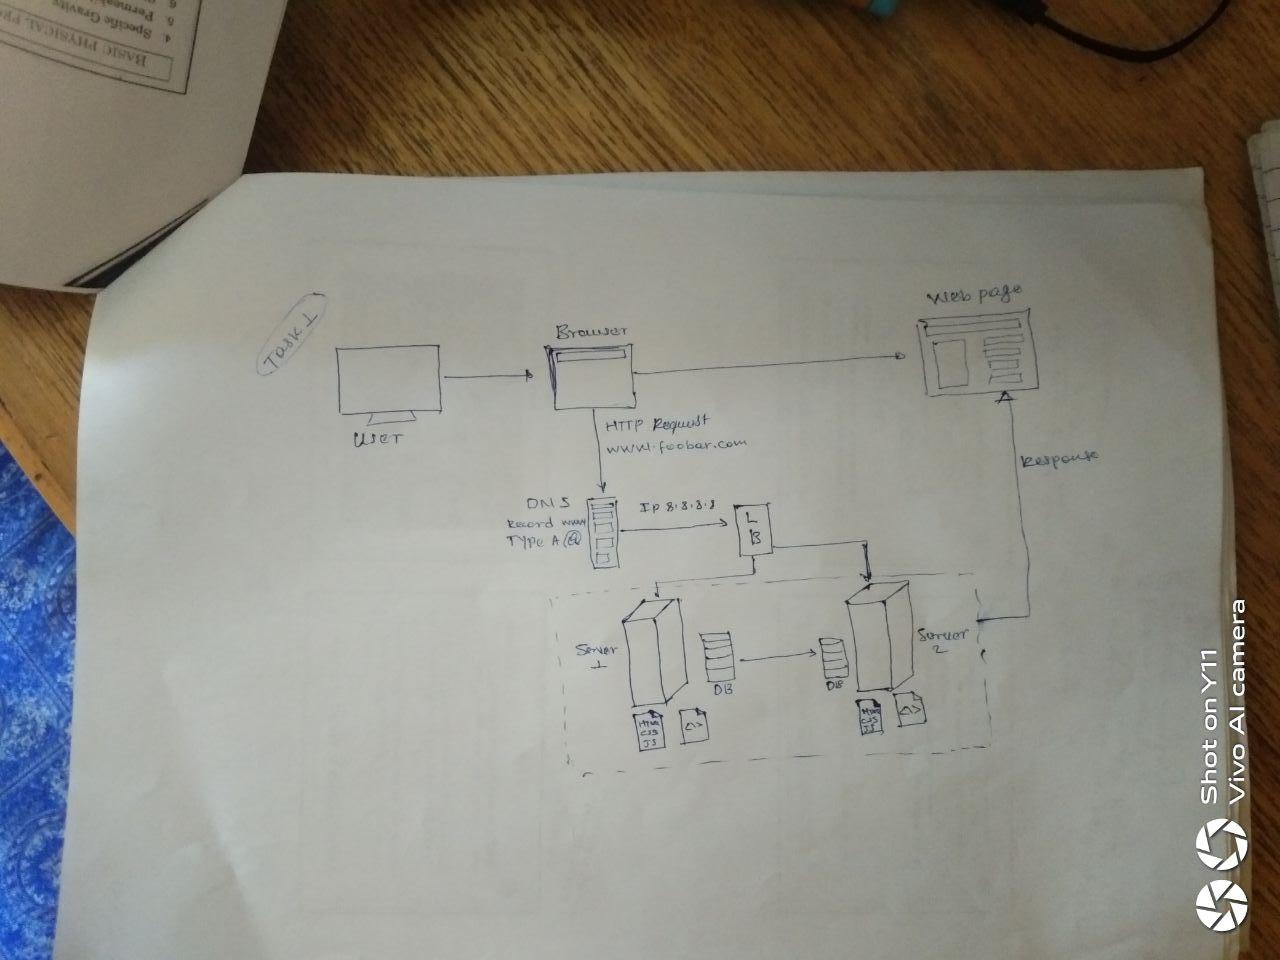 BASIC PHYSICAL PRO
4. Specific Gravity
5. Permea
6.
Task 1
User
Browser
Web page
HTTP Request
www.foobar.com
DNS
Record www
TYPE A @
Ip 8.8.8.8
L
B
Response
Server
1
DB
DB
Server
2
HTML
CSS
JS
<\>
HTML
CSS
JS
<\>
Shot on Y11
Vivo AI camera